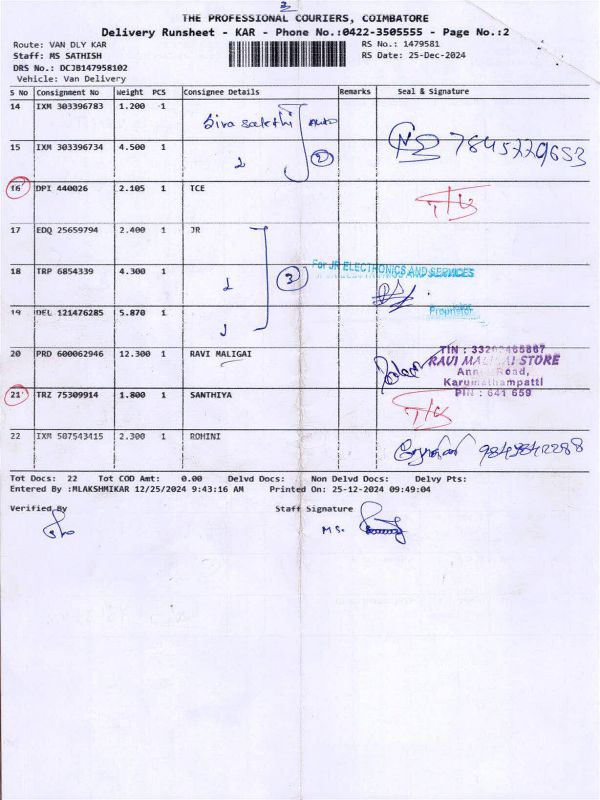 3
THE PROFESSIONAL COURIERS, COIMBATORE
Delivery Runsheet - KAR - Phone No.:0422-3505555 - Page No.:2
Route: VAN DLY KAR
RS No.: 1479581
Staff: MS SATHISH
RS Date: 25-Dec-2024
DRS No.: DCJB147958102
Vehicle: Van Delivery
S No Consignment No Weight PCS Consignee Details Remarks Seal & Signature
14 IXM 303396783 1.200 1 Siva sakthi Auto
15 IXM 303396734 4.500 1 2 78457709653
16 DPI 440026 2.105 1 TCE
17 EDQ 25659794 2.400 1 JR
18 TRP 6854339 4.300 1 3 For JR ELECTRONICS AND SERVICES
19 DEL 121476285 5.870 1 Proprietor
20 PRD 600062946 12.300 1 RAVI MALIGAI
TIN : 332
RAVI MALIGAI STORE
Road,
Karumathampatti
PIN : 641 659
21 TRZ 75309914 1.800 1 SANTHIYA
22 IXM 507543415 2.300 1 ROHINI
Tot Docs: 22 Tot COD Amt: 0.00 Delvd Docs: Non Delvd Docs: Delvy Pts:
Entered By :MLAKSHMIKAR 12/25/2024 9:43:16 AM Printed On: 25-12-2024 09:49:04
Verified By Staff Signature
MS.